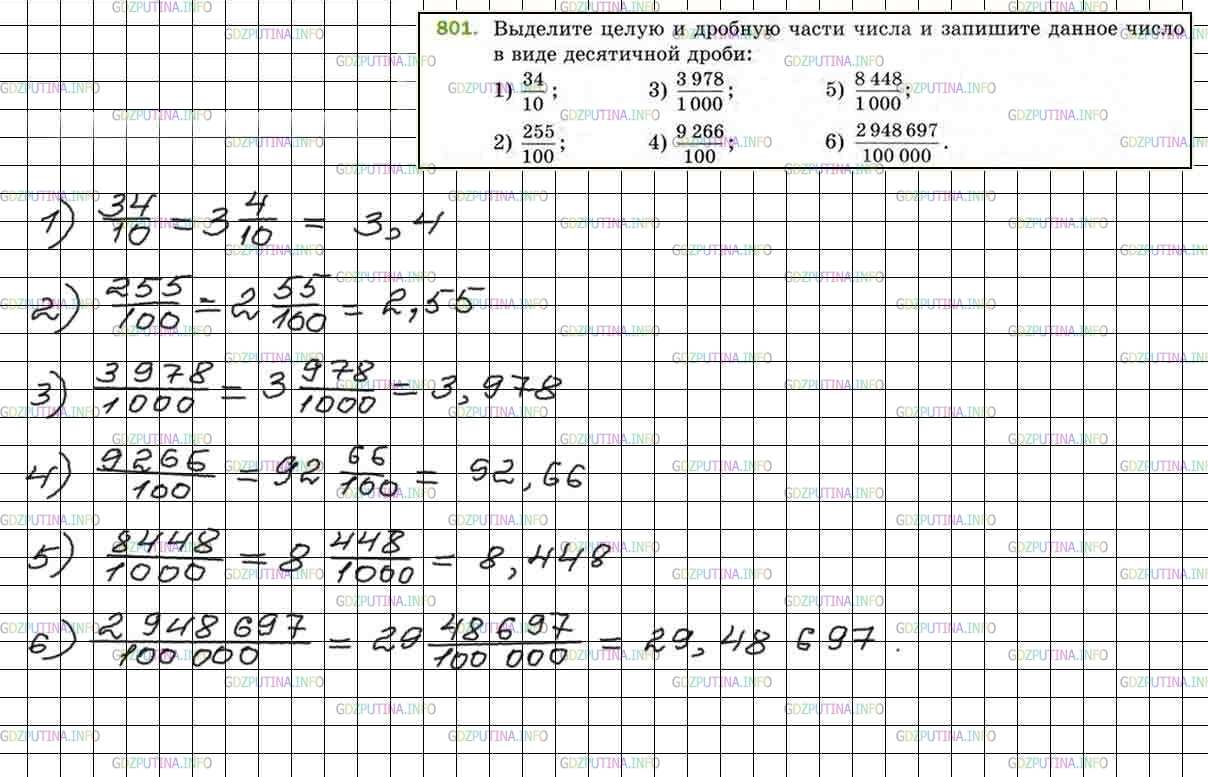 801. Выделите целую и дробную части числа и запишите данное число
в виде десятичной дроби:
1) 34/10; 3) 3 978/1 000; 5) 8 448/1 000;
2) 255/100; 4) 9 266/100; 6) 2 948 697/100 000.
1) 34/10 = 3 4/10 = 3,4
2) 255/100 = 2 55/100 = 2,55
3) 3978/1000 = 3 978/1000 = 3,978
4) 9266/100 = 92 66/100 = 92,66
5) 8448/1000 = 8 448/1000 = 8,448
6) 2 948 697/100 000 = 29 48 697/100 000 = 29,48 697.
GDZPUTINA.INFO